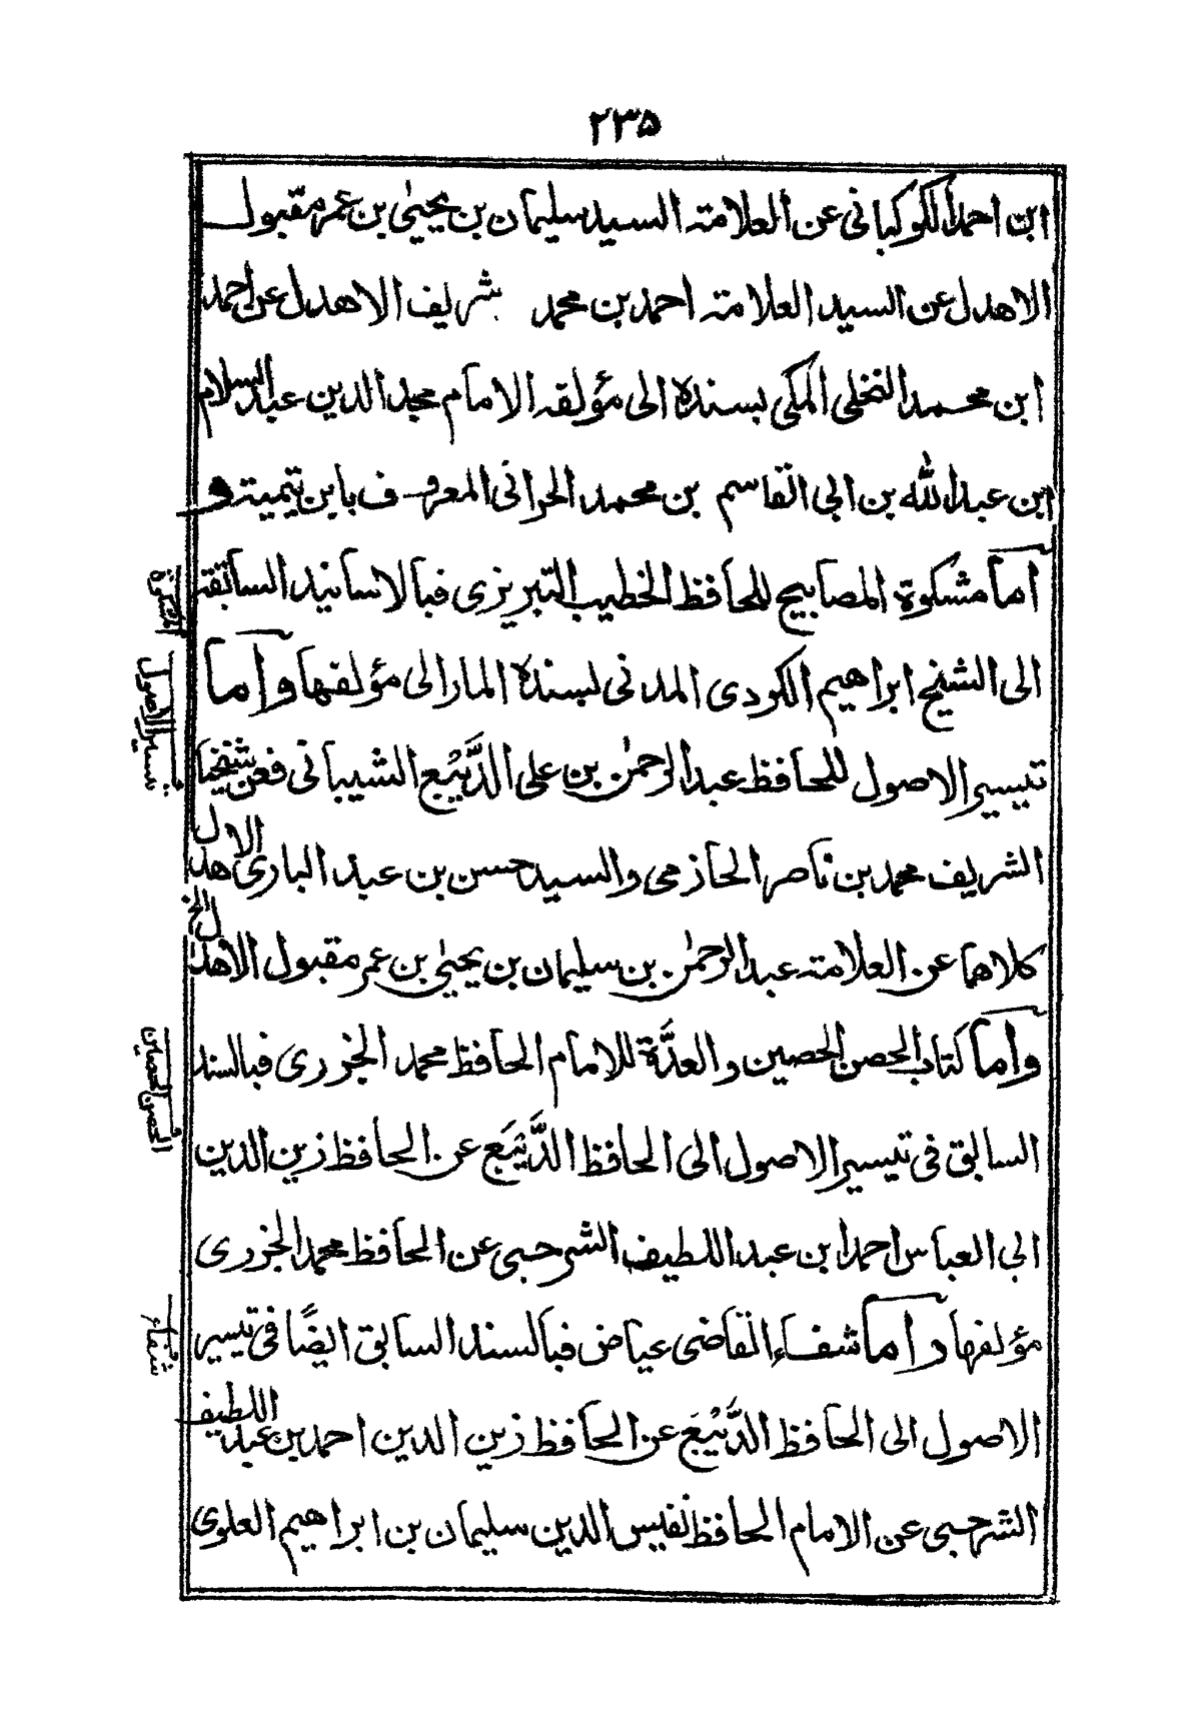 ۲۳۵
ابن احمد الكوكبانى عن العلامة السيد سليمان بن يحيىٰ بن عمر مقبول
الاهدل عن السيد العلامة احمد بن محمد شريف الاهدل عن احمد
ابن محمد النخلى المكى بسنده الى مؤلفه الامام مجد الدين عبد السلام
ابن عبد الله بن ابى القاسم بن محمد الحرانى المعروف بابن تيمية و
اما مشكوة المصابيح للحافظ الخطيب التبريزى فبالاسانيد السابقة
المشكوة
الى الشيخ ابراهيم الكودى المدنى بسنده المار الى مؤلفها و اما
تيسير الاصول
تيسير الاصول للحافظ عبد الرحمٰن بن على الدَّيْبَع الشيبانى فعن شيخنا
الشريف محمد بن ناصر الحازمى والسيد حسن بن عبد البارى الاهدل
كلاهما عن العلامة عبد الرحمٰن بن سليمان بن يحيىٰ بن عمر مقبول الاهدل الخ
واما كتاب الحصن الحصين والعدَّة للامام الحافظ محمد الجزرى فبالسند
الحصن الحصين
السابق فى تيسير الاصول الى الحافظ الدَّيْبَع عن الحافظ زين الدين
ابى العباس احمد ابن عبد اللطيف الشرجى عن الحافظ محمد الجزرى
مؤلفها و اما شفاء القاضى عياض فبالسند السابق ايضًا فى تيسير
شفاء
الاصول الى الحافظ الدَّيْبَع عن الحافظ زين الدين احمد بن عبد اللطيف
الشرجى عن الامام الحافظ نفيس الدين سليمان بن ابراهيم العلوى